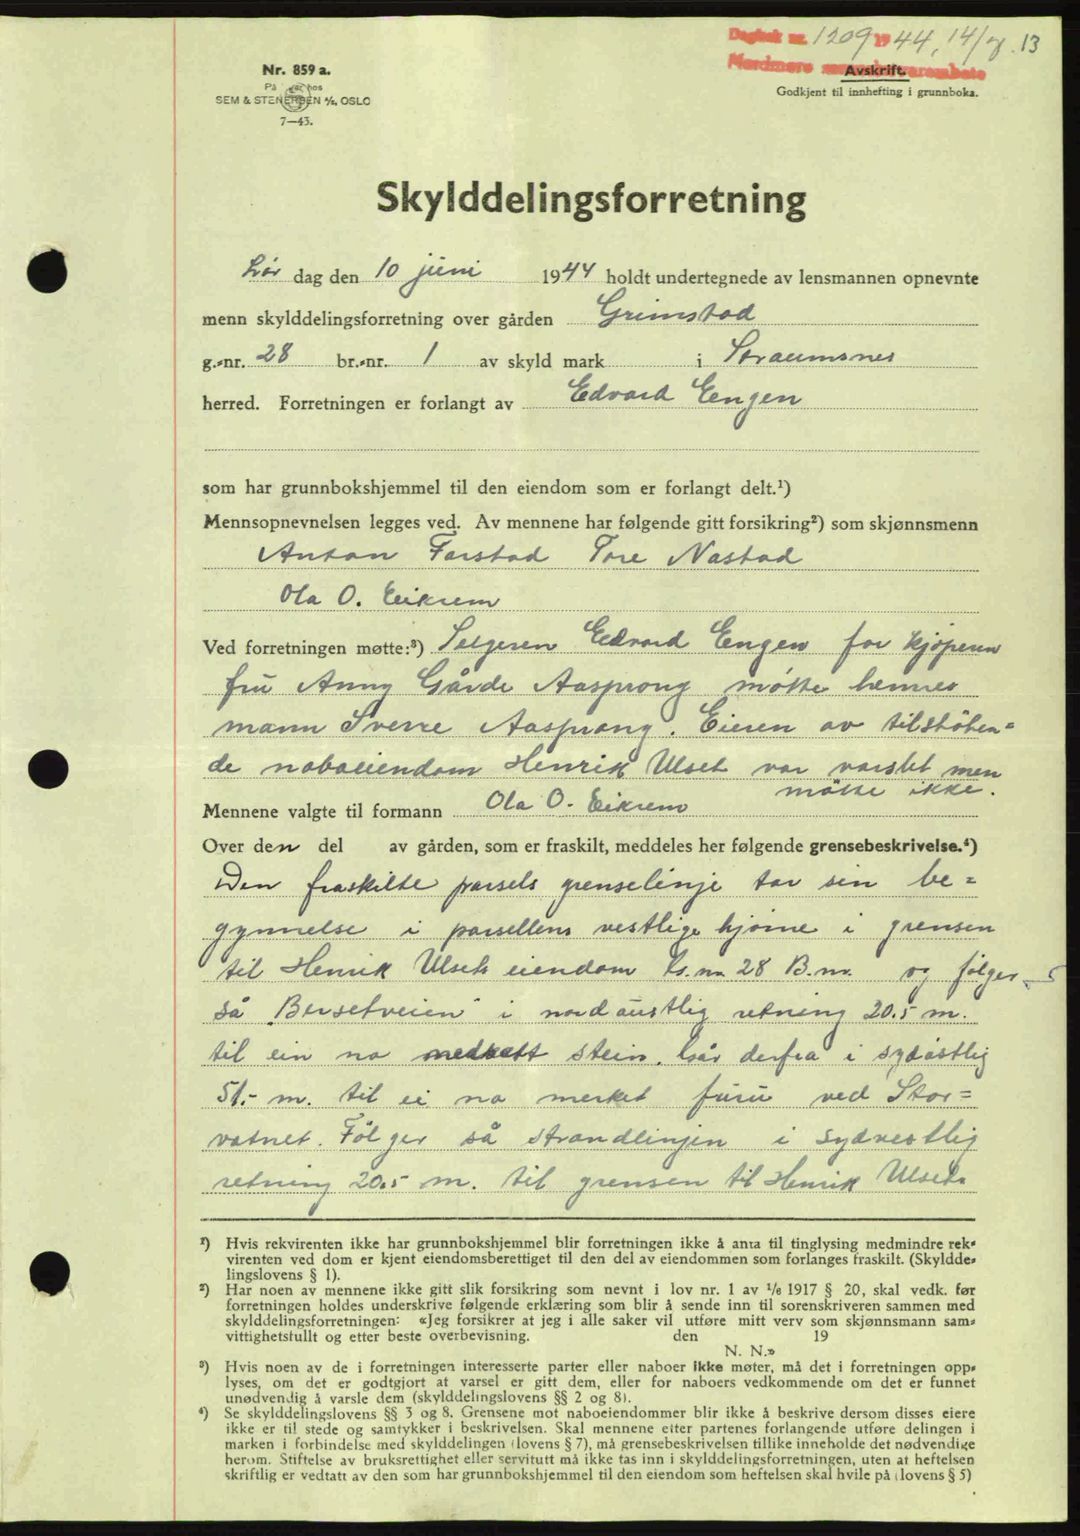 Dagbok nr. 1209 1944, 14/7 13
Nordmøre sorenskriverembete
Nr. 859 a.
På lager hos
SEM & STENERSEN A/S, OSLO
7—43.
Avskrift.
Godkjent til innhefting i grunnboka.
Skylddelingsforretning
Lør dag den 10 juni 1944 holdt undertegnede av lensmannen opnevnte
menn skylddelingsforretning over gården Grimstad
g.-nr. 28 br.-nr. 1 av skyld mark i Straumsnes
herred. Forretningen er forlangt av Edvard Engen
som har grunnbokshjemmel til den eiendom som er forlangt delt.¹)
Mennsopnevnelsen legges ved. Av mennene har følgende gitt forsikring²) som skjønnsmenn
Anton Farstad Tore Nastad
Ola O. Eikrem
Ved forretningen møtte:³) Selgeren Edvard Engen for kjøperen
fru Anny Gårde Aasprong møtte hennes
mann Sverre Aasprong. Eieren av tilstøten=
de naboeiendom Henrik Ulset var varslet men
møtte ikke.
Mennene valgte til formann Ola O. Eikrem
Over den del av gården, som er fraskilt, meddeles her følgende grensebeskrivelse.⁴)
Den fraskilte parsels grenselinje tar sin be=
gynnelse i parsellens vestlige hjørne i grensen
til Henrik Ulsets eiendom G.nr. 28 B.nr. og følger
så "Bersetveien" i nordaustlig retning 20.5 m.
til ein na medsatt stein. Går derfra i sydøstlig
51.- m. til ei na merket furu ved Stor=
vatnet. Følger så strandlinjen i sydvestlig
retning 20.5 m. til grensen til Henrik Ulset.
¹) Hvis rekvirenten ikke har grunnbokshjemmel blir forretningen ikke å anta til tinglysing medmindre rek-
virenten ved dom er kjent eiendomsberettiget til den del av eiendommen som forlanges fraskilt. (Skyldde-
lingslovens § 1).
²) Har noen av mennene ikke gitt slik forsikring som nevnt i lov nr. 1 av 1/6 1917 § 20, skal vedk. før
forretningen holdes underskrive følgende erklæring som blir å sende inn til sorenskriveren sammen med
skylddelingsforretningen: «Jeg forsikrer at jeg i alle saker vil utføre mitt verv som skjønnsmann sam-
vittighetsfullt og etter beste overbevisning. den 19
N. N.»
³) Hvis noen av de i forretningen interesserte parter eller naboer ikke møter, må det i forretningen opp-
lyses, om det er godtgjort at varsel er gitt dem, eller for naboers vedkommende om det er funnet
unødvendig å varsle dem (skylddelingslovens §§ 2 og 8).
⁴) Se skylddelingslovens §§ 3 og 8. Grensene mot naboeiendommer blir ikke å beskrive dersom disses eiere
ikke er til stede og samtykker i beskrivelsen. Skal mennene etter partenes forlangende utføre delingen i
marken i forbindelse med skylddelingen (lovens § 7), må grensebeskrivelsen tillike inneholde det nødvendige
herom. Stiftelse av bruksrettighet eller servitutt må ikke tas inn i skylddelingsforretningen, uten at heftelsen
skriftlig er vedtatt av den som har grunnbokshjemmel til den eiendom som heftelsen skal hvile på (lovens § 5)